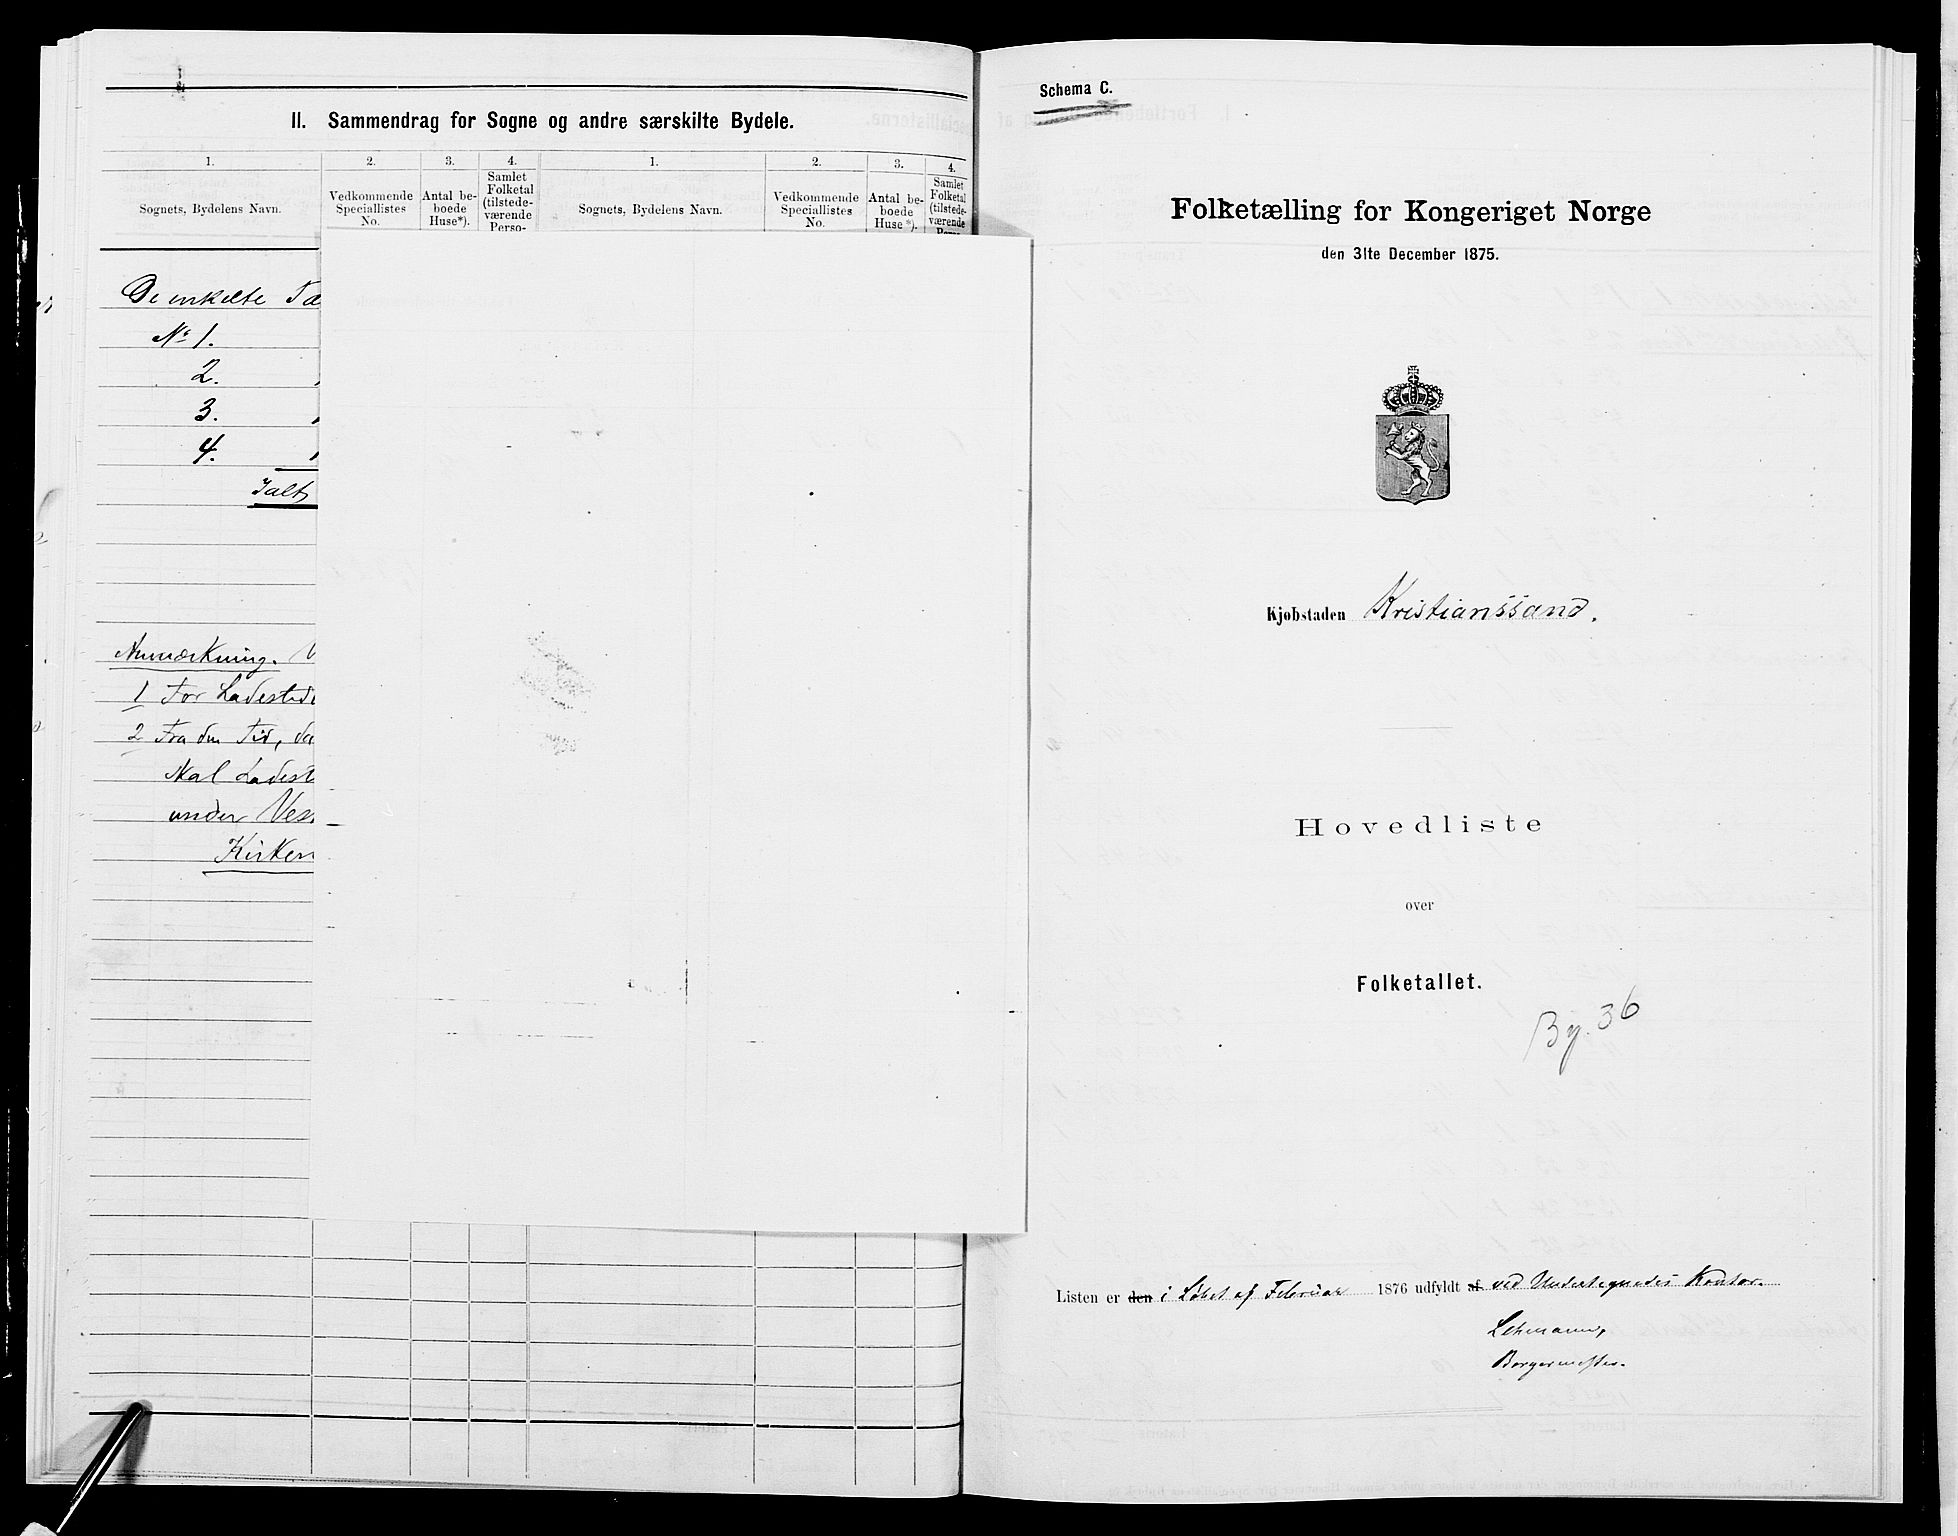 II. Sammendrag for Sogne og andre særskilte Bydele.
1. 2. 3. 4. 1. 2. 3. 4.
Sognets, Bydelens Navn.
Vedkommende
Speciallistes
No.
Antal be-
boede
Huse*).
Samlet
Folketal
(tilstede-
værende
Perso-
Sognets, Bydelens Navn.
Vedkommende
Speciallistes
No.
Antal be-
boede
Huse*).
Samlet
Folketal
(tilstede-
værende
De enkelte Tæ
No 1.
2.
3.
4.
Ialt
Anmærkning. V
1 For Ladested
2 Fra den Tid, da
skal Ladest
under Ves
Kirken
Schema C.
Folketælling for Kongeriget Norge
den 31te December 1875.
Kjøbstaden Kristianssand.
Hovedliste
over
Folketallet.
By. 36
Listen er den i Løbet af Februar 1876 udfyldt af ved Undertegnedes Kontor.
Lehmann,
Borgermester.